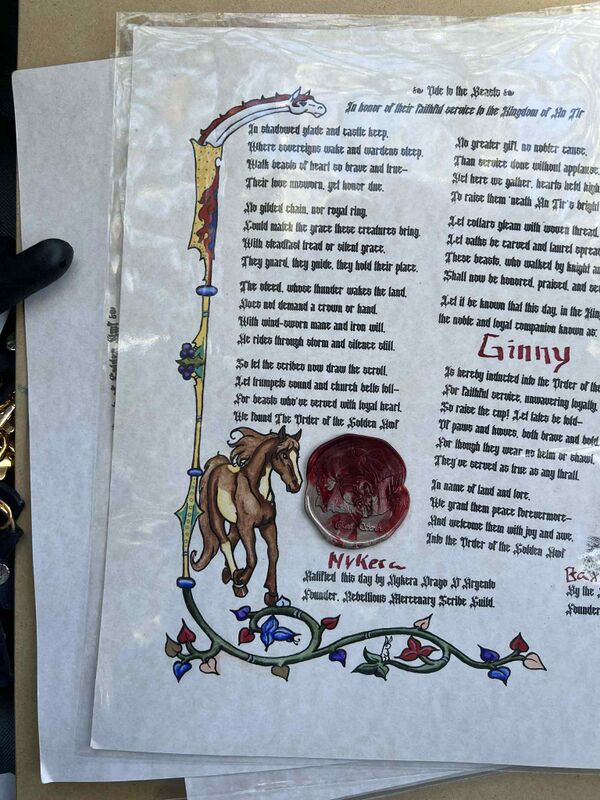 Ode to the Beasts
In honor of their faithful service to the Kingdom of An Tir
In shadowed glade and castle keep,
Where sovereigns wake and wardens sleep,
Walk beasts of heart so brave and true—
Their love unsworn, yet honor due.
No gilded chain, nor royal ring,
Could match the grace these creatures bring.
With steadfast tread or silent grace,
They guard, they guide, they hold their place.
The steed, whose thunder wakes the land,
Does not demand a crown or hand.
With wind-sworn mane and iron will,
He rides through storm and silence still.
So let the scribes now draw the scroll,
Let trumpets sound and church bells toll—
For beasts who've served with loyal heart,
We found The Order of the Golden Awf
Nykera
Ratified this day by Nykera Drago D'Argento
Founder, Rebellious Mercenary Scribe Guild.
No greater gift, no nobler cause,
Than service done without applause.
Yet here we gather, hearts held high
To raise them 'neath An Tir's bright
Let collars gleam with woven thread,
Let oaths be carved and laurel spread
These beasts, who walked by knight
Shall now be honored, praised, and
Let it be known that this day, in the
the noble and loyal companion known as:
Ginny
Is hereby inducted into the Order of the
For faithful service, unwavering loyalty,
So raise the cup! Let tales be told—
Of paws and hooves, both brave and bold
For though they wear no helm or shawl,
They've served as true as any thrall.
In name of land and lore,
We grant them peace forevermore—
And welcome them with joy and awe,
Into the Order of the Golden Awf
By the
Founder